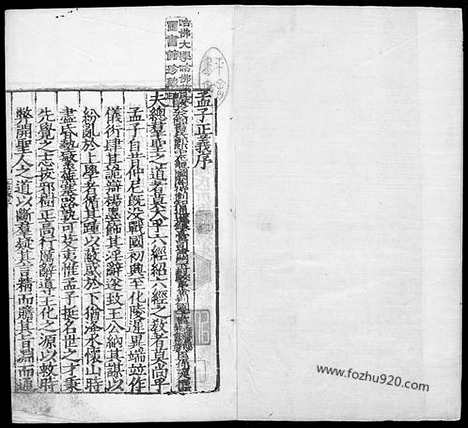 哈佛大學哈佛燕京
圖書館珍藏印
孟子正義序
夫總羣聖之道者莫大乎六經紹六經之教者莫尚乎
孟子自昔仲尼既沒戰國初興至化陵遲異端並作
儀衍肆其詭辯楊墨飾其淫辭遂致王公納其謀以
紛亂於上學者循其踵以蔽惑於下猶洚水懷山時
盡昏墊繁蕪塞路孰可芟夷惟孟子挺名世之才秉
先覺之志拔邪樹正高行厲辭導王化之源以救時
弊開聖人之道以斷羣疑其言精而贍其旨淵而通
www.fozhu920.com